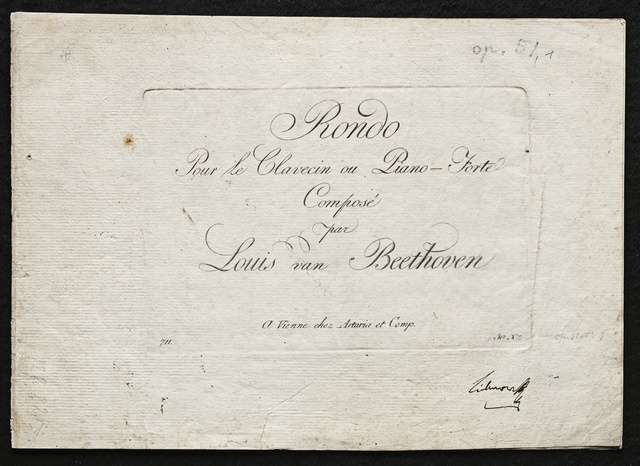 op. 51,1
Rondo
Pour le Clavecin ou Piano-Forte
Composé
par
Louis van Beethoven
A Vienne chez Artaria et Comp.
711